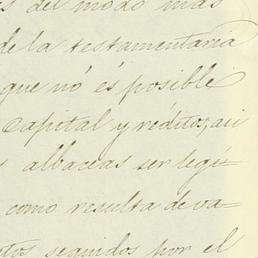 del modo mas
de la testamentaria
que nó és posible
capital y réditos, asi
albaceas ser legi-
como resulta de va-
seguidos por el